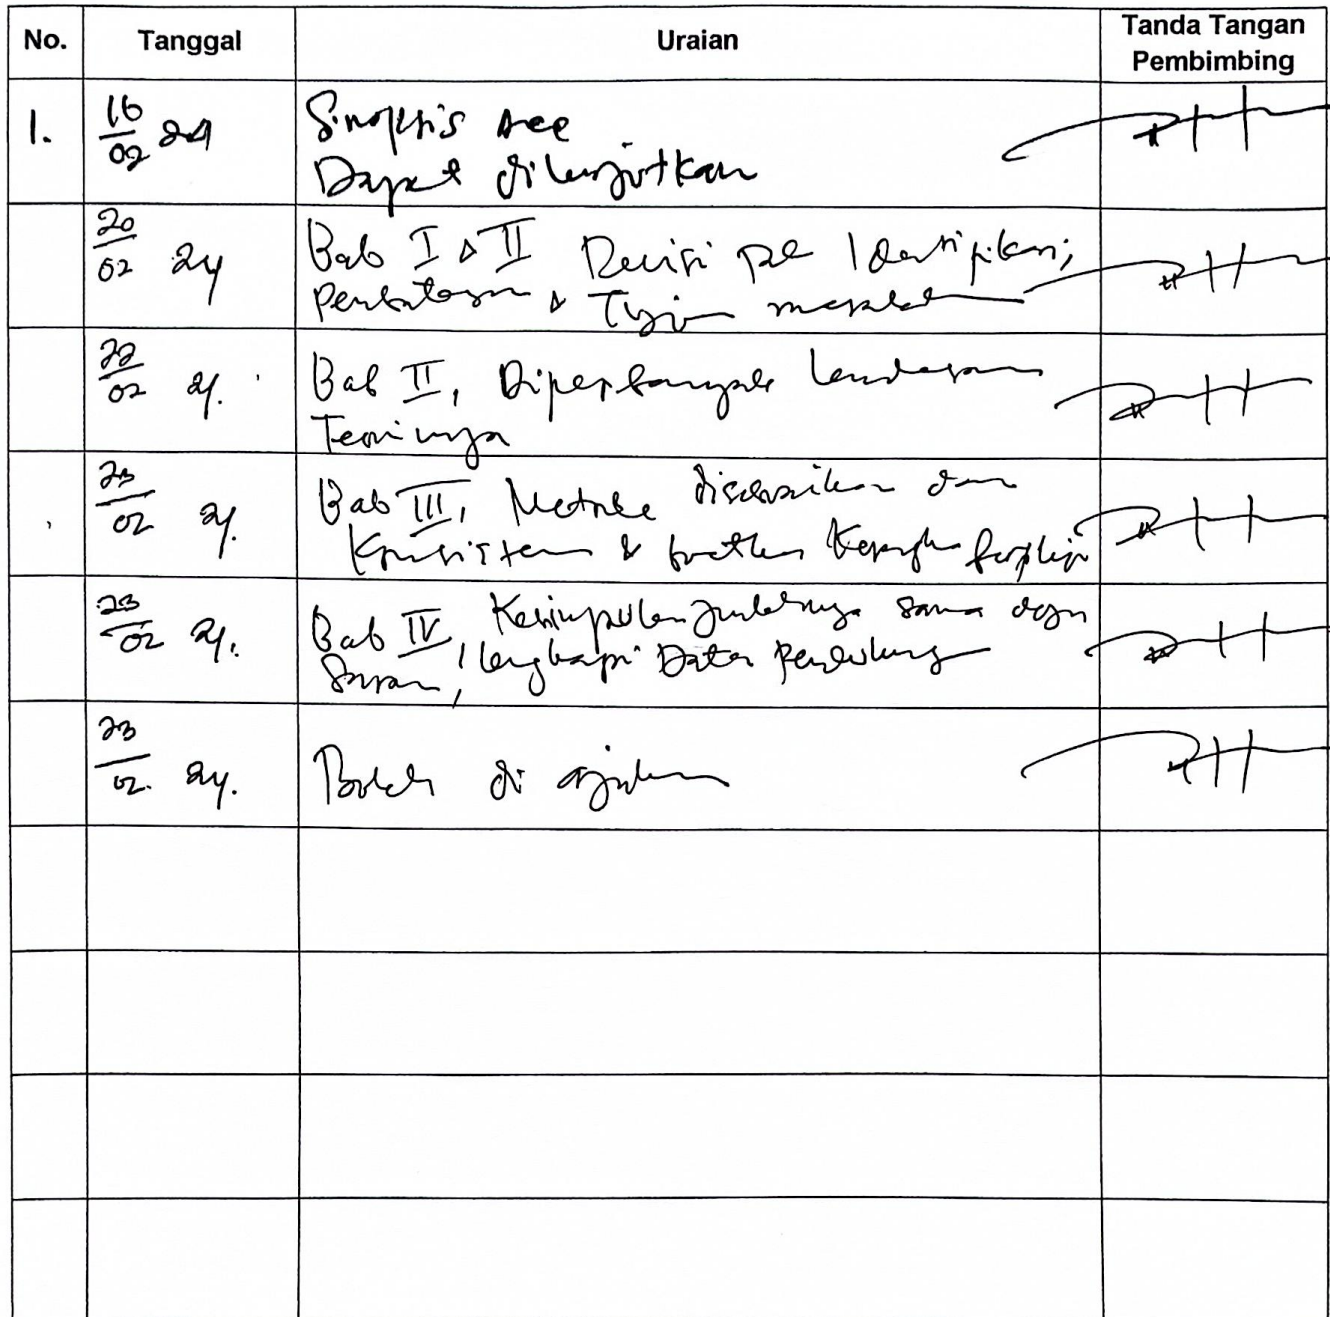 No. Tanggal Uraian Tanda Tangan Pembimbing
1. 16/02 24 Sinopsis acc
Dapat dilanjutkan
20/02 24 Bab I & II Revisi Identifikasi,
Pembatasan & Tujuan masalah
22/02 24. Bab II, Diperbanyak Landasan
Teorinya
23/02 24. Bab III, Metode disesuaikan dan
Konsisten & buatkan Kerangka
23/02 24. Bab IV, Kesimpulan jumlahnya sama dgn
Saran, lengkapi Data Pendukung
23/02. 24. Boleh di ajukan